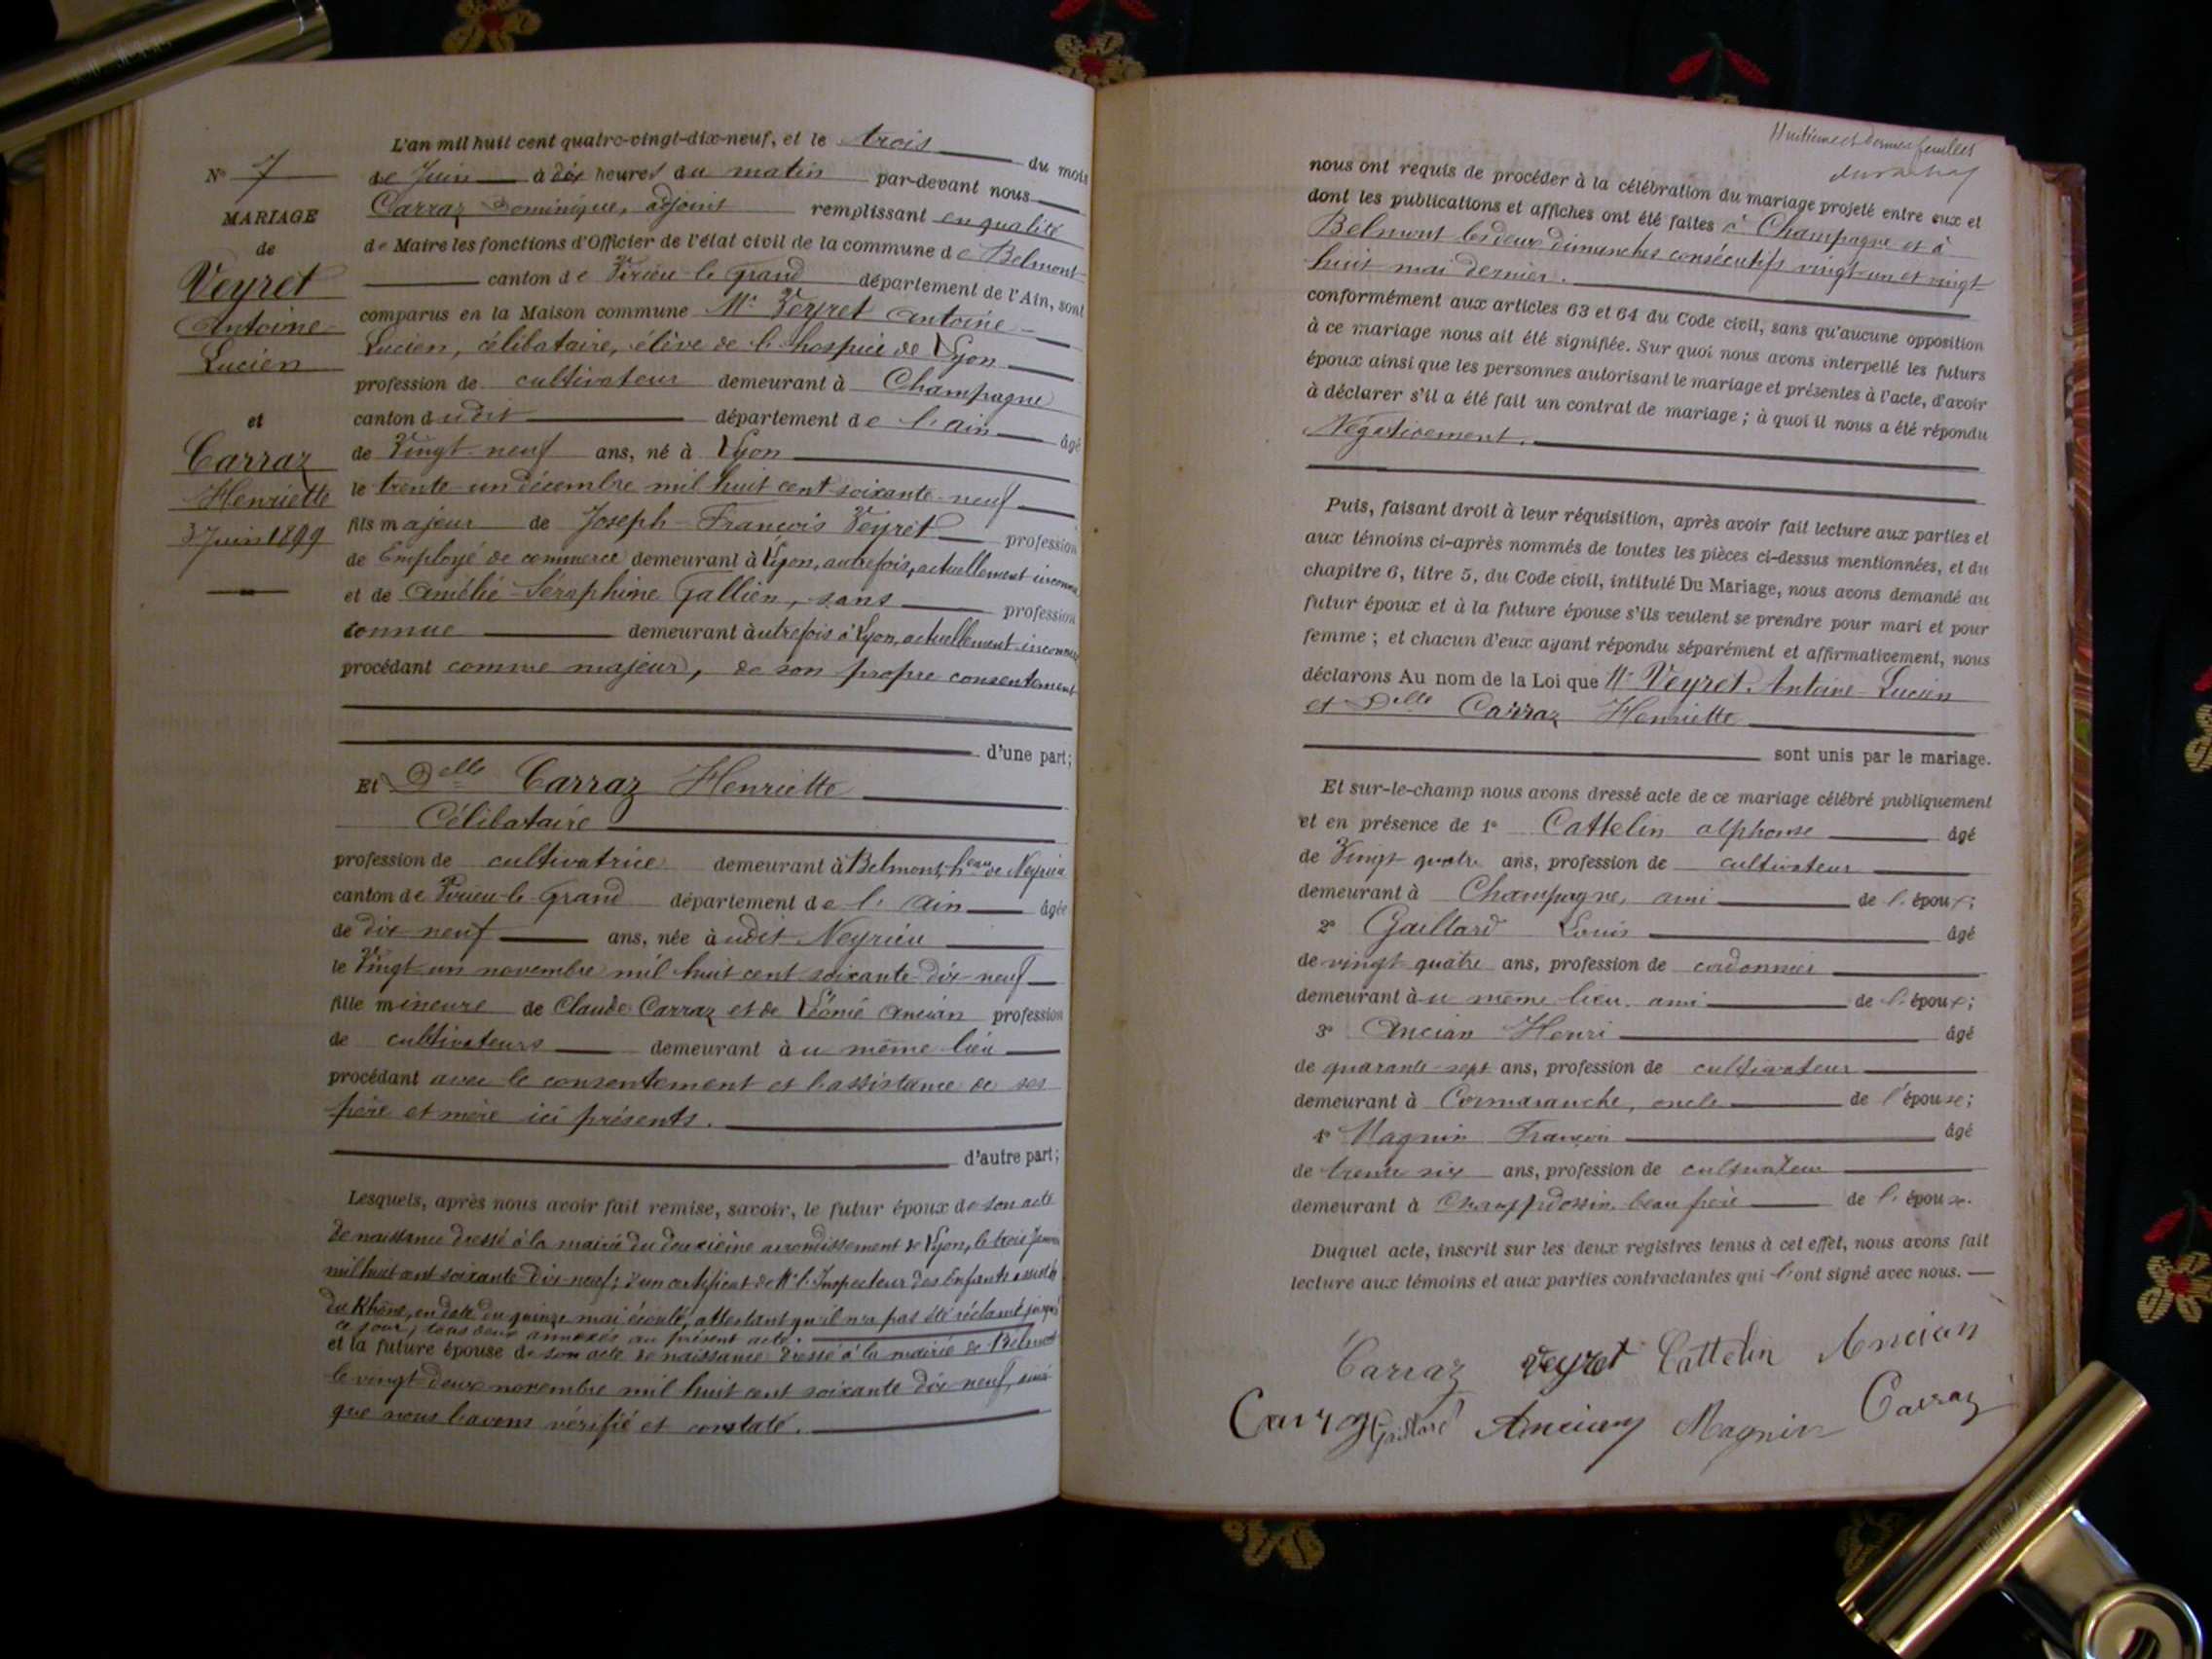 N° 7
MARIAGE
de
Veyret
Antoine
Lucien
et
Carraz
Henriette
3 Juin 1899
L'an mil huit cent quatre-vingt-dix-neuf, et le trois du mois
de Juin à dix heures du matin par-devant nous
Carraz Dominique, adjoint remplissant en qualité
de Maire les fonctions d'Officier de l'état civil de la commune de Belmont
canton de Virieu-le-Grand département de l'Ain, sont
comparus en la Maison commune Mr Veyret Antoine
Lucien, célibataire, élève de l'hospice de Lyon
profession de cultivateur demeurant à Champagne
canton dudit département de l'ain âgé
de Vingt-neuf ans, né à Lyon
le trente-un décembre mil huit cent soixante-neuf
fils majeur de Joseph-François Veyret profession
de Employé de commerce demeurant à Lyon, autrefois, actuellement inconnu
et de Amélie-Séraphine Gallien, sans profession
connue demeurant autrefois à Lyon, actuellement inconnue
procédant comme majeur, de son propre consentement
d'une part;
Et Delle Carraz Henriette
Célibataire
profession de cultivatrice demeurant à Belmont, heau de Neyrieu
canton de Virieu-le-Grand département de l'Ain âgée
de dix neuf ans, née audit Neyrieu
le Vingt-un novembre mil huit cent soixante-dix-neuf
fille mineure de Claude Carraz et de Léonie Ancian profession
de cultivateurs demeurant au même lieu
procédant avec le consentement et l'assistance de ses
père et mère ici présents.
d'autre part;
Lesquels, après nous avoir fait remise, savoir, le futur époux de son acte
de naissance dressé à la mairie du deuxième arrondissement de Lyon, le trois Janvier
mil huit cent soixante-dix-neuf; d'un certificat de Mr l'Inspecteur des Enfants assistés
du Rhône, en date du quinze mai écoulé, attestant qu'il n'a pas été réclamé jusqu'à
ce jour; tous deux annexés au présent acte.
et la future épouse de son acte de naissance dressé à la mairie de Belmont
le vingt-deux novembre mil huit cent soixante-dix-neuf, ainsi
que nous l'avons vérifié et constaté.
Huitième et dernier feuillet
nous ont requis de procéder à la célébration du mariage projeté entre eux et
dont les publications et affiches ont été faites à Champagne et à
Belmont les deux dimanches consécutifs vingt-un et vingt-
huit mai dernier.
conformément aux articles 63 et 64 du Code civil, sans qu'aucune opposition
à ce mariage nous ait été signifiée. Sur quoi nous avons interpellé les futurs
époux ainsi que les personnes autorisant le mariage et présentes à l'acte, d'avoir
à déclarer s'il a été fait un contrat de mariage; à quoi il nous a été répondu
Négativement.
Puis, faisant droit à leur réquisition, après avoir fait lecture aux parties et
aux témoins ci-après nommés de toutes les pièces ci-dessus mentionnées, et du
chapitre 6, titre 5, du Code civil, intitulé Du Mariage, nous avons demandé au
futur époux et à la future épouse s'ils veulent se prendre pour mari et pour
femme; et chacun d'eux ayant répondu séparément et affirmativement, nous
déclarons Au nom de la Loi que Mr Veyret Antoine-Lucien
et Delle Carraz Henriette
sont unis par le mariage.
Et sur-le-champ nous avons dressé acte de ce mariage célébré publiquement
et en présence de 1° Cattelin alphonse âgé
de Vingt-quatre ans, profession de cultivateur
demeurant à Champagne, ami de l'époux;
2° Gaillard Louis âgé
de vingt-quatre ans, profession de cordonnier
demeurant au même lieu, ami de l'époux;
3° Ancian Henri âgé
de quarante-sept ans, profession de cultivateur
demeurant à Cormaranche, oncle de l'épouse;
4° Magnin François âgé
de trente six ans, profession de cultivateur
demeurant à Champdossin, beau frère de l'époux.
Duquel acte, inscrit sur les deux registres tenus à cet effet, nous avons fait
lecture aux témoins et aux parties contractantes qui l'ont signé avec nous.
Carraz Veyret Cattelin Ancian
Carraz Gaillard Ancian Magnin Carraz